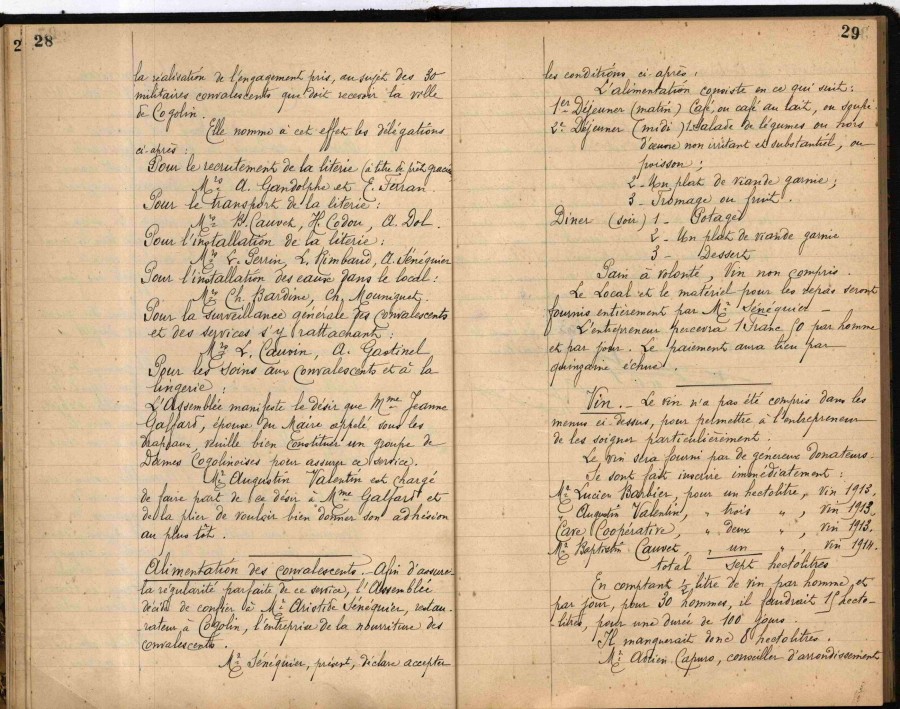 2 28
la réalisation de l'engagement pris, au sujet des 30
militaires convalescents que doit recevoir la ville
de Cogolin.
Elle nomme à cet effet les délégations
ci-après :
Pour le recrutement de la literie (à titre de prêt gracieux)
Mrs A. Gandolphe et E. Ferran.
Pour le transport de la literie :
Mrs B. Cauvet, H. Codou, A. Dol.
Pour l'installation de la literie :
Mrs L. Perrin, L. Rimbaud, A. Sénéquier
Pour l'installation des eaux dans le local :
Mrs Ch. Bardine, Ch. Mouniguet.
Pour la surveillance générale des convalescents
et des services s'y rattachant :
Mrs L. Cauvin, A. Gastinel
Pour les soins aux convalescents et à la
lingerie :
L'Assemblée manifeste le désir que Mme Jeanne
Galfard, épouse du Maire appelé sous les
drapeaux, veuille bien constituer un groupe de
Dames Cogolinoises pour assurer ce service.
Mr Augustin Valentin est chargé
de faire part de ce désir à Mme Galfard et
de la prier de vouloir bien donner son adhésion
au plus tôt.
Alimentation des convalescents. - Afin d'assurer
la régularité parfaite de ce service, l'Assemblée
décide de confier à Mr Aristide Sénéquier, restau-
rateur à Cogolin, l'entreprise de la nourriture des
convalescents.
Mr Sénéquier, présent, déclare accepter
29
les conditions ci-après :
L'alimentation consiste en ce qui suit :
1er Déjeuner (matin) Café, ou café au lait, ou soupe
2e Déjeuner (midi) 1- Salade de légumes ou hors
d'œuvre non irritant et substantiel, ou
poisson ;
2 - Un plat de viande garnie ;
3 - Fromage ou fruit.
Diner (soir) 1 - Potage
2 - Un plat de viande garnie
3 - Dessert
Pain à volonté, Vin non compris.
Le Local et le matériel pour les repas seront
fournis entièrement par Mr Sénéquier -
L'entrepreneur percevra 1 Franc 50 par homme
et par jour. Le paiement aura lieu par
quinzaine échue.
Vin. - Le vin n'a pas été compris dans les
menus ci-dessus, pour permettre à l'entrepreneur
de les soigner particulièrement.
Le vin sera fourni par de genereux donateurs.
Se sont fait inscrire immédiatement :
Mr Lucien Barbier, pour un hectolitre, vin 1913.
" Augustin Valentin, " trois " , vin 1913.
Cave Coopérative, " deux " , vin 1913.
Mr Baptistin Cauvet " un vin 1914.
total sept hectolitres
En comptant ½ litre de vin par homme, et
par jour, pour 30 hommes, il faudrait 15 hecto-
litres, pour une durée de 100 jours.
Il manquerait donc 8 hectolitres.
Mr Adrien Capuro, conseiller d'arrondissement